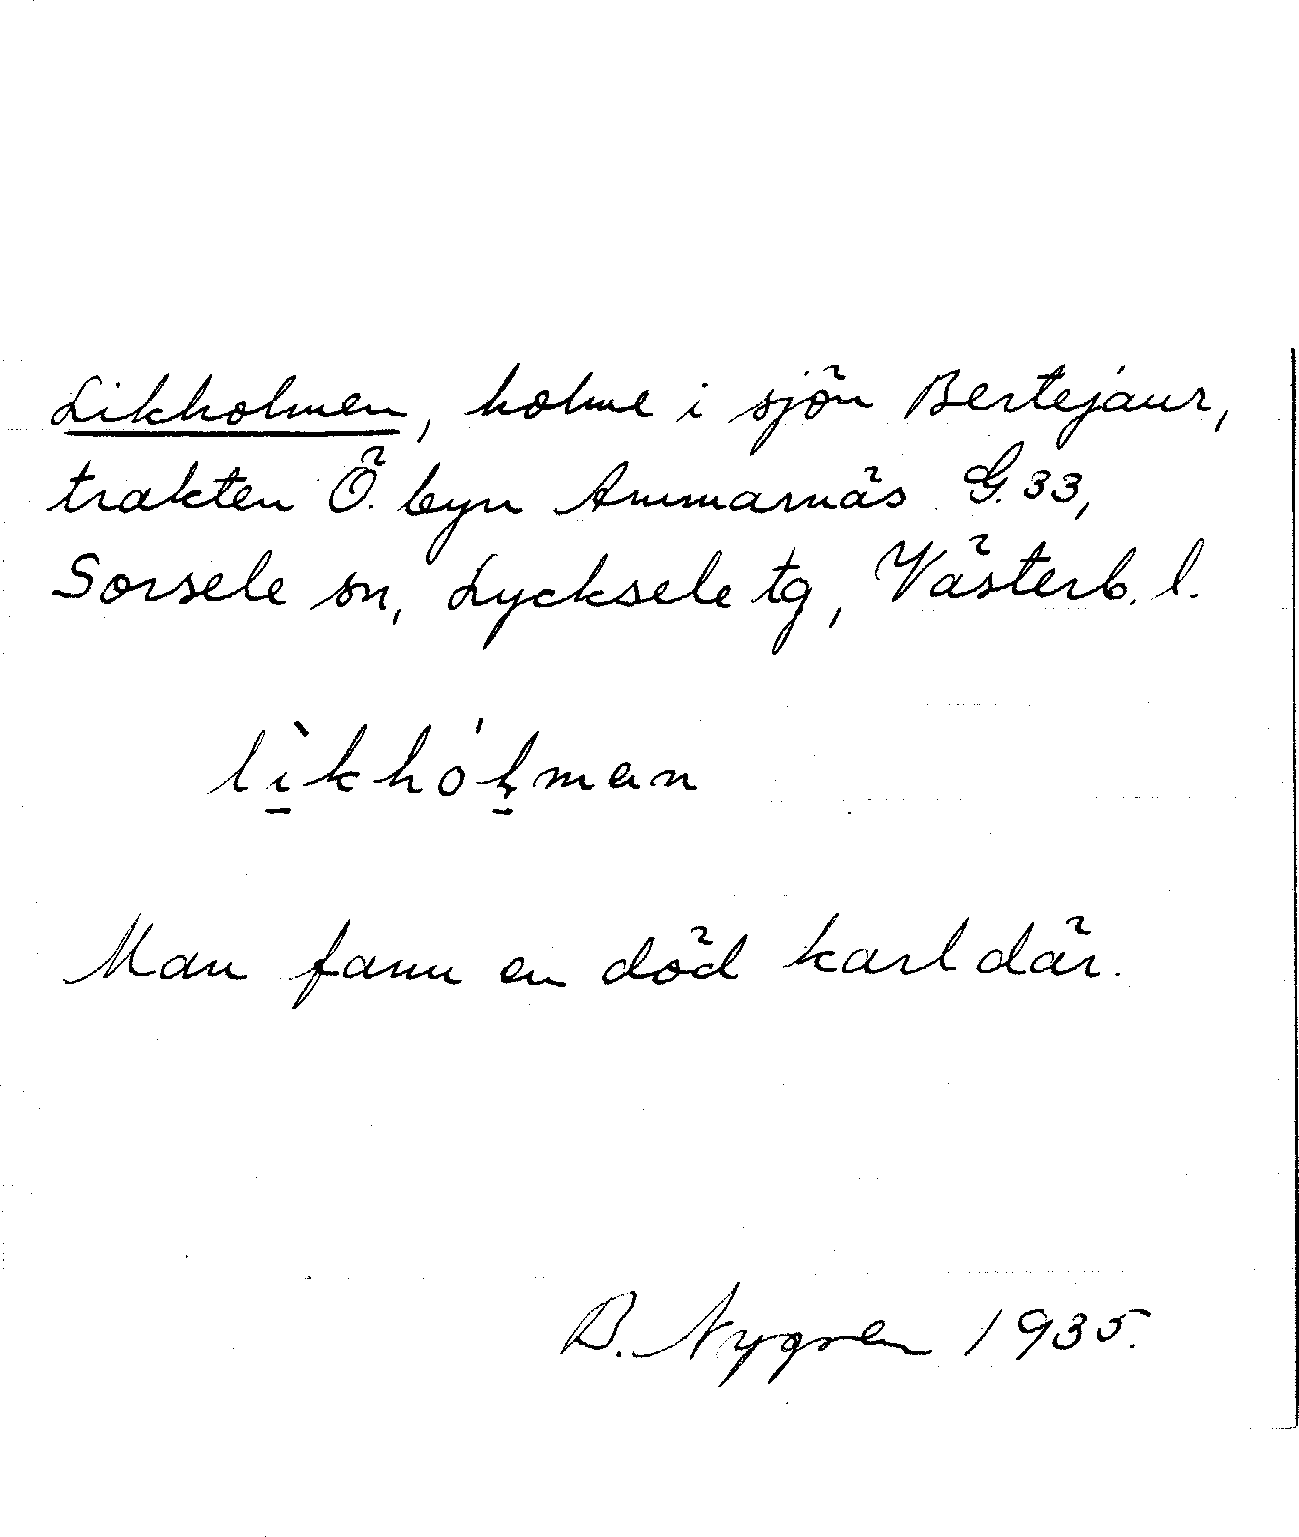 Likholmen, holme i sjön Bertejaur,
trakten Ö. byn Ammarnäs G. 33,
Sorsele sn, Lycksele tg, Västerb. l.
lìkhóḷman
Man fann en död karl där.
B. Nygren 1935.